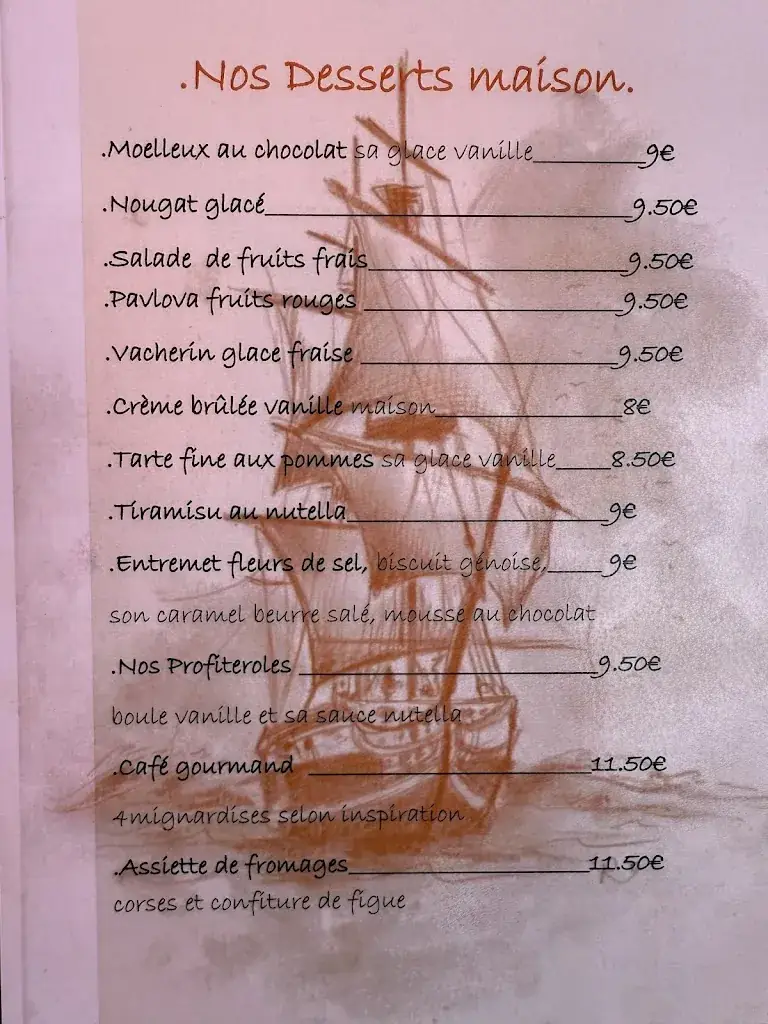 .Nos Desserts maison.
.Moelleux au chocolat sa glace vanille__________9€
.Nougat glacé__________9.50€
.Salade de fruits frais__________9.50€
.Pavlova fruits rouges __________9.50€
.Vacherin glace fraise __________9.50€
.Crème brûlée vanille maison__________8€
.Tarte fine aux pommes sa glace vanille____8.50€
.Tiramisu au nutella__________9€
.Entremet fleurs de sel, biscuit génoise,____9€
son caramel beurre salé, mousse au chocolat
.Nos Profiteroles __________9.50€
boule vanille et sa sauce nutella
.Café gourmand __________11.50€
4 mignardises selon inspiration
.Assiette de fromages__________11.50€
corses et confiture de figue